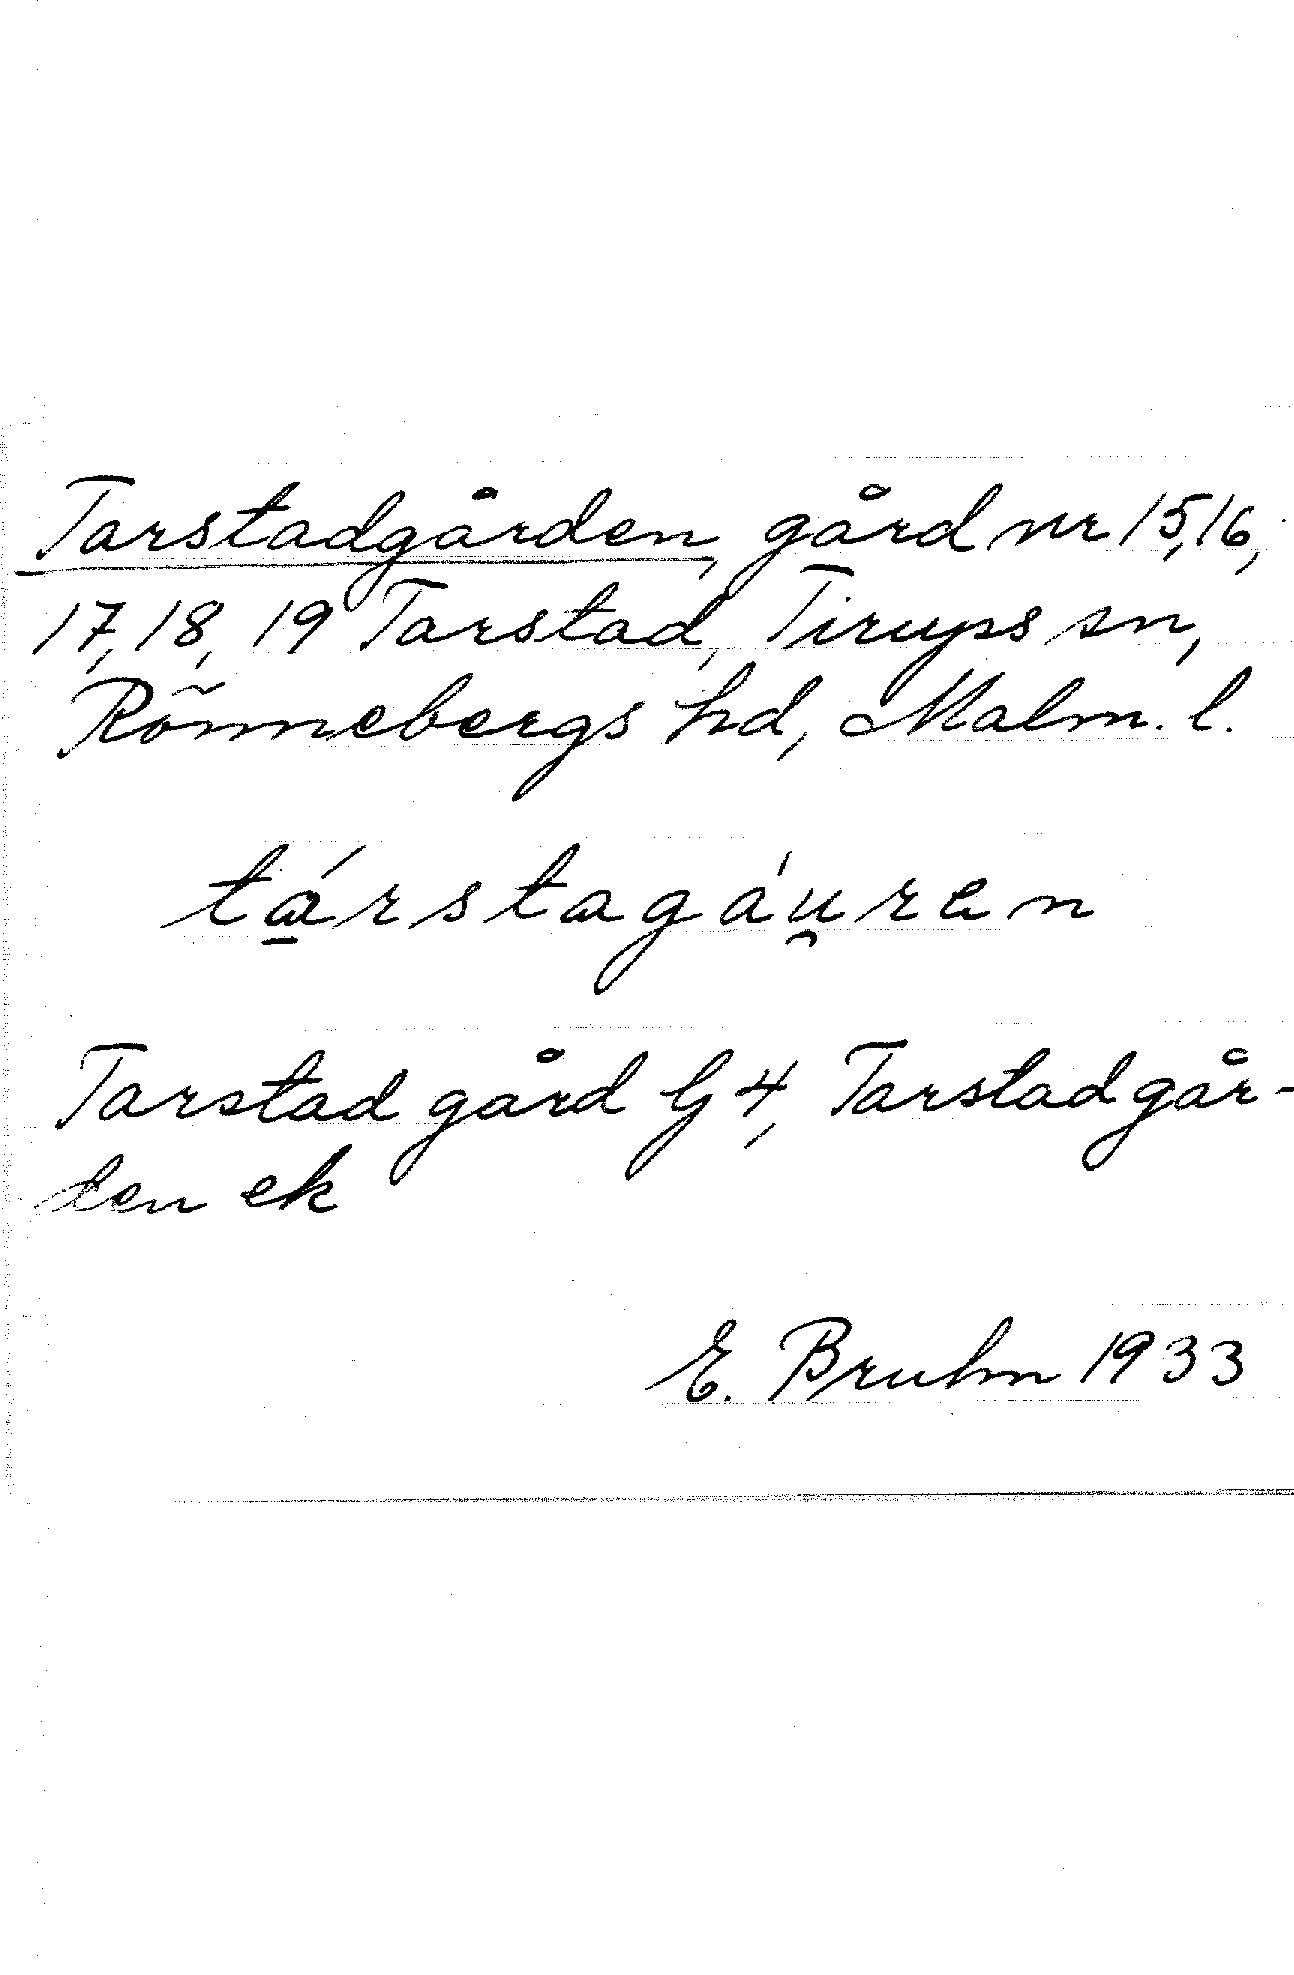 Tarstadgården, gård nr 15, 16,
17, 18, 19 Tarstad, Tirups sn,
Rönnebergs hd, Malm. l.
tá̱rstagáu̯ren
Tarstad gård G 4, Tarstadgår-
den ek
E. Bruhn 1933